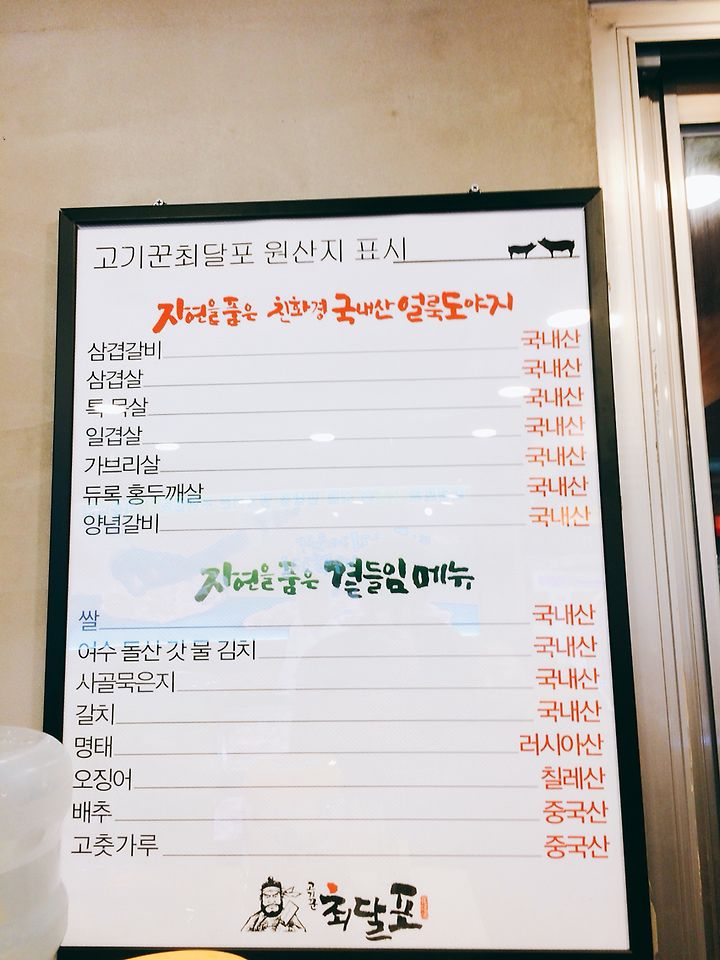 고기꾼최달포 원산지 표시
자연을품은 친화경 국내산 얼룩도야지
삼겹갈비 국내산
삼겹살 국내산
특 목살 국내산
일겹살 국내산
가브리살 국내산
듀록 홍두깨살 국내산
양념갈비 국내산
자연을품은 곁들임 메뉴
쌀 국내산
여수 돌산 갓 물 김치 국내산
사골묵은지 국내산
갈치 국내산
명태 러시아산
오징어 칠레산
배추 중국산
고춧가루 중국산
고기꾼 최달포